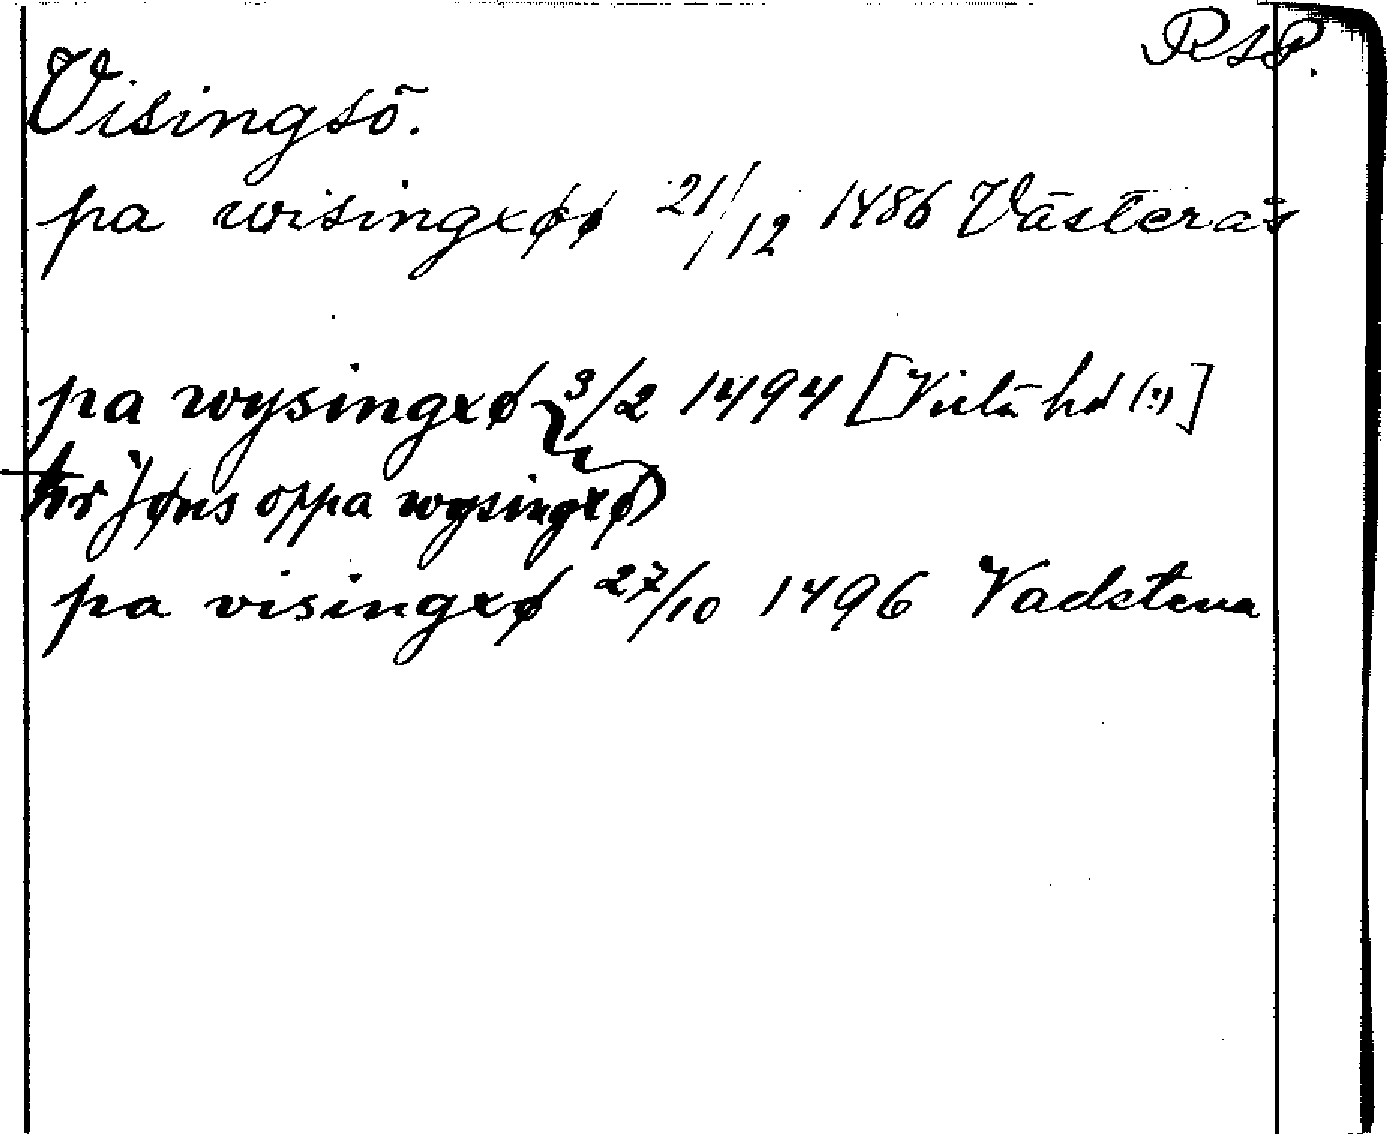 RSP.
Visingsö.
pa wisingxøø 21/12 1486 Västerås
pa wysingxø 3/2 1494 [Vista hd (?)]
hr Jøns oppa wysingxø
pa visingxø 27/10 1496 Vadstena